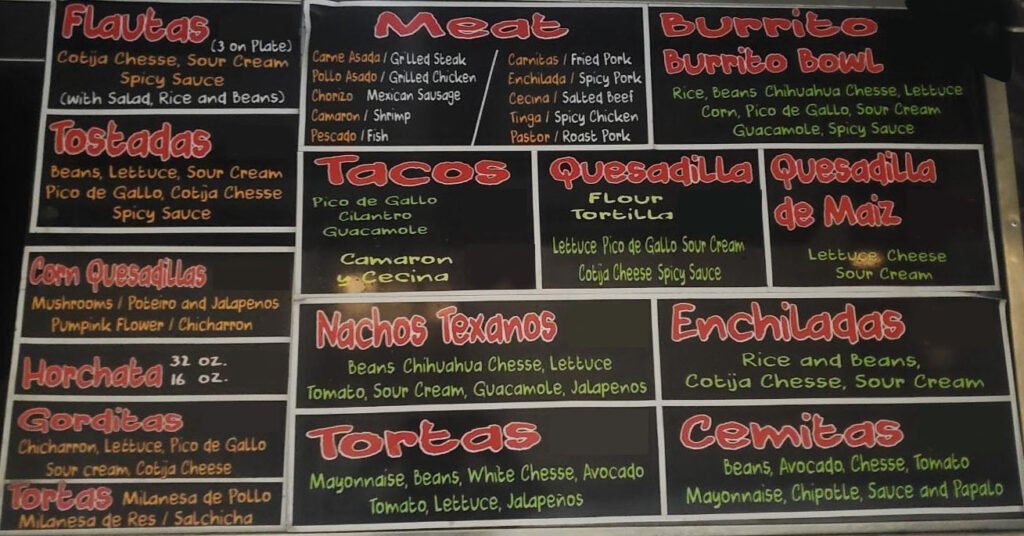 Flautas
(3 on Plate)
Cotija Chesse, Sour Cream
Spicy Sauce
(with Salad, Rice and Beans)
Tostadas
Beans, Lettuce, Sour Cream
Pico de Gallo, Cotija Chesse
Spicy Sauce
Corn Quesadillas
Mushrooms / Poteiro and Jalapenos
Pumpink Flower / Chicharron
Horchata 32 oz.
16 oz.
Gorditas
Chicharron, Lettuce, Pico de Gallo
Sour cream, Cotija Cheese
Tortas Milanesa de Pollo
Milanesa de Res / Salchicha
Meat
Carne Asada / Grilled Steak
Pollo Asado / Grilled Chicken
Chorizo Mexican Sausage
Camaron / Shrimp
Pescado / Fish
Carnitas / Fried Pork
Enchilada / Spicy Pork
Cecina / Salted Beef
Tinga / Spicy Chicken
Pastor / Roast Pork
Burrito
Burrito Bowl
Rice, Beans Chihuahua Chesse, Lettuce
Corn, Pico de Gallo, Sour Cream
Guacamole, Spicy Sauce
Tacos
Pico de Gallo
Cilantro
Guacamole
Camaron
y Cecina
Quesadilla
Flour
Tortilla
Lettuce Pico de Gallo Sour Cream
Cotija Cheese Spicy Sauce
Quesadilla
de Maiz
Lettuce Cheese
Sour Cream
Nachos Texanos
Beans Chihuahua Chesse, Lettuce
Tomato, Sour Cream, Guacamole, Jalapenos
Enchiladas
Rice and Beans,
Cotija Chesse, Sour Cream
Tortas
Mayonnaise, Beans, White Chesse, Avocado
Tomato, Lettuce, Jalapeños
Cemitas
Beans, Avocado, Chesse, Tomato
Mayonnaise, Chipotle, Sauce and Papalo